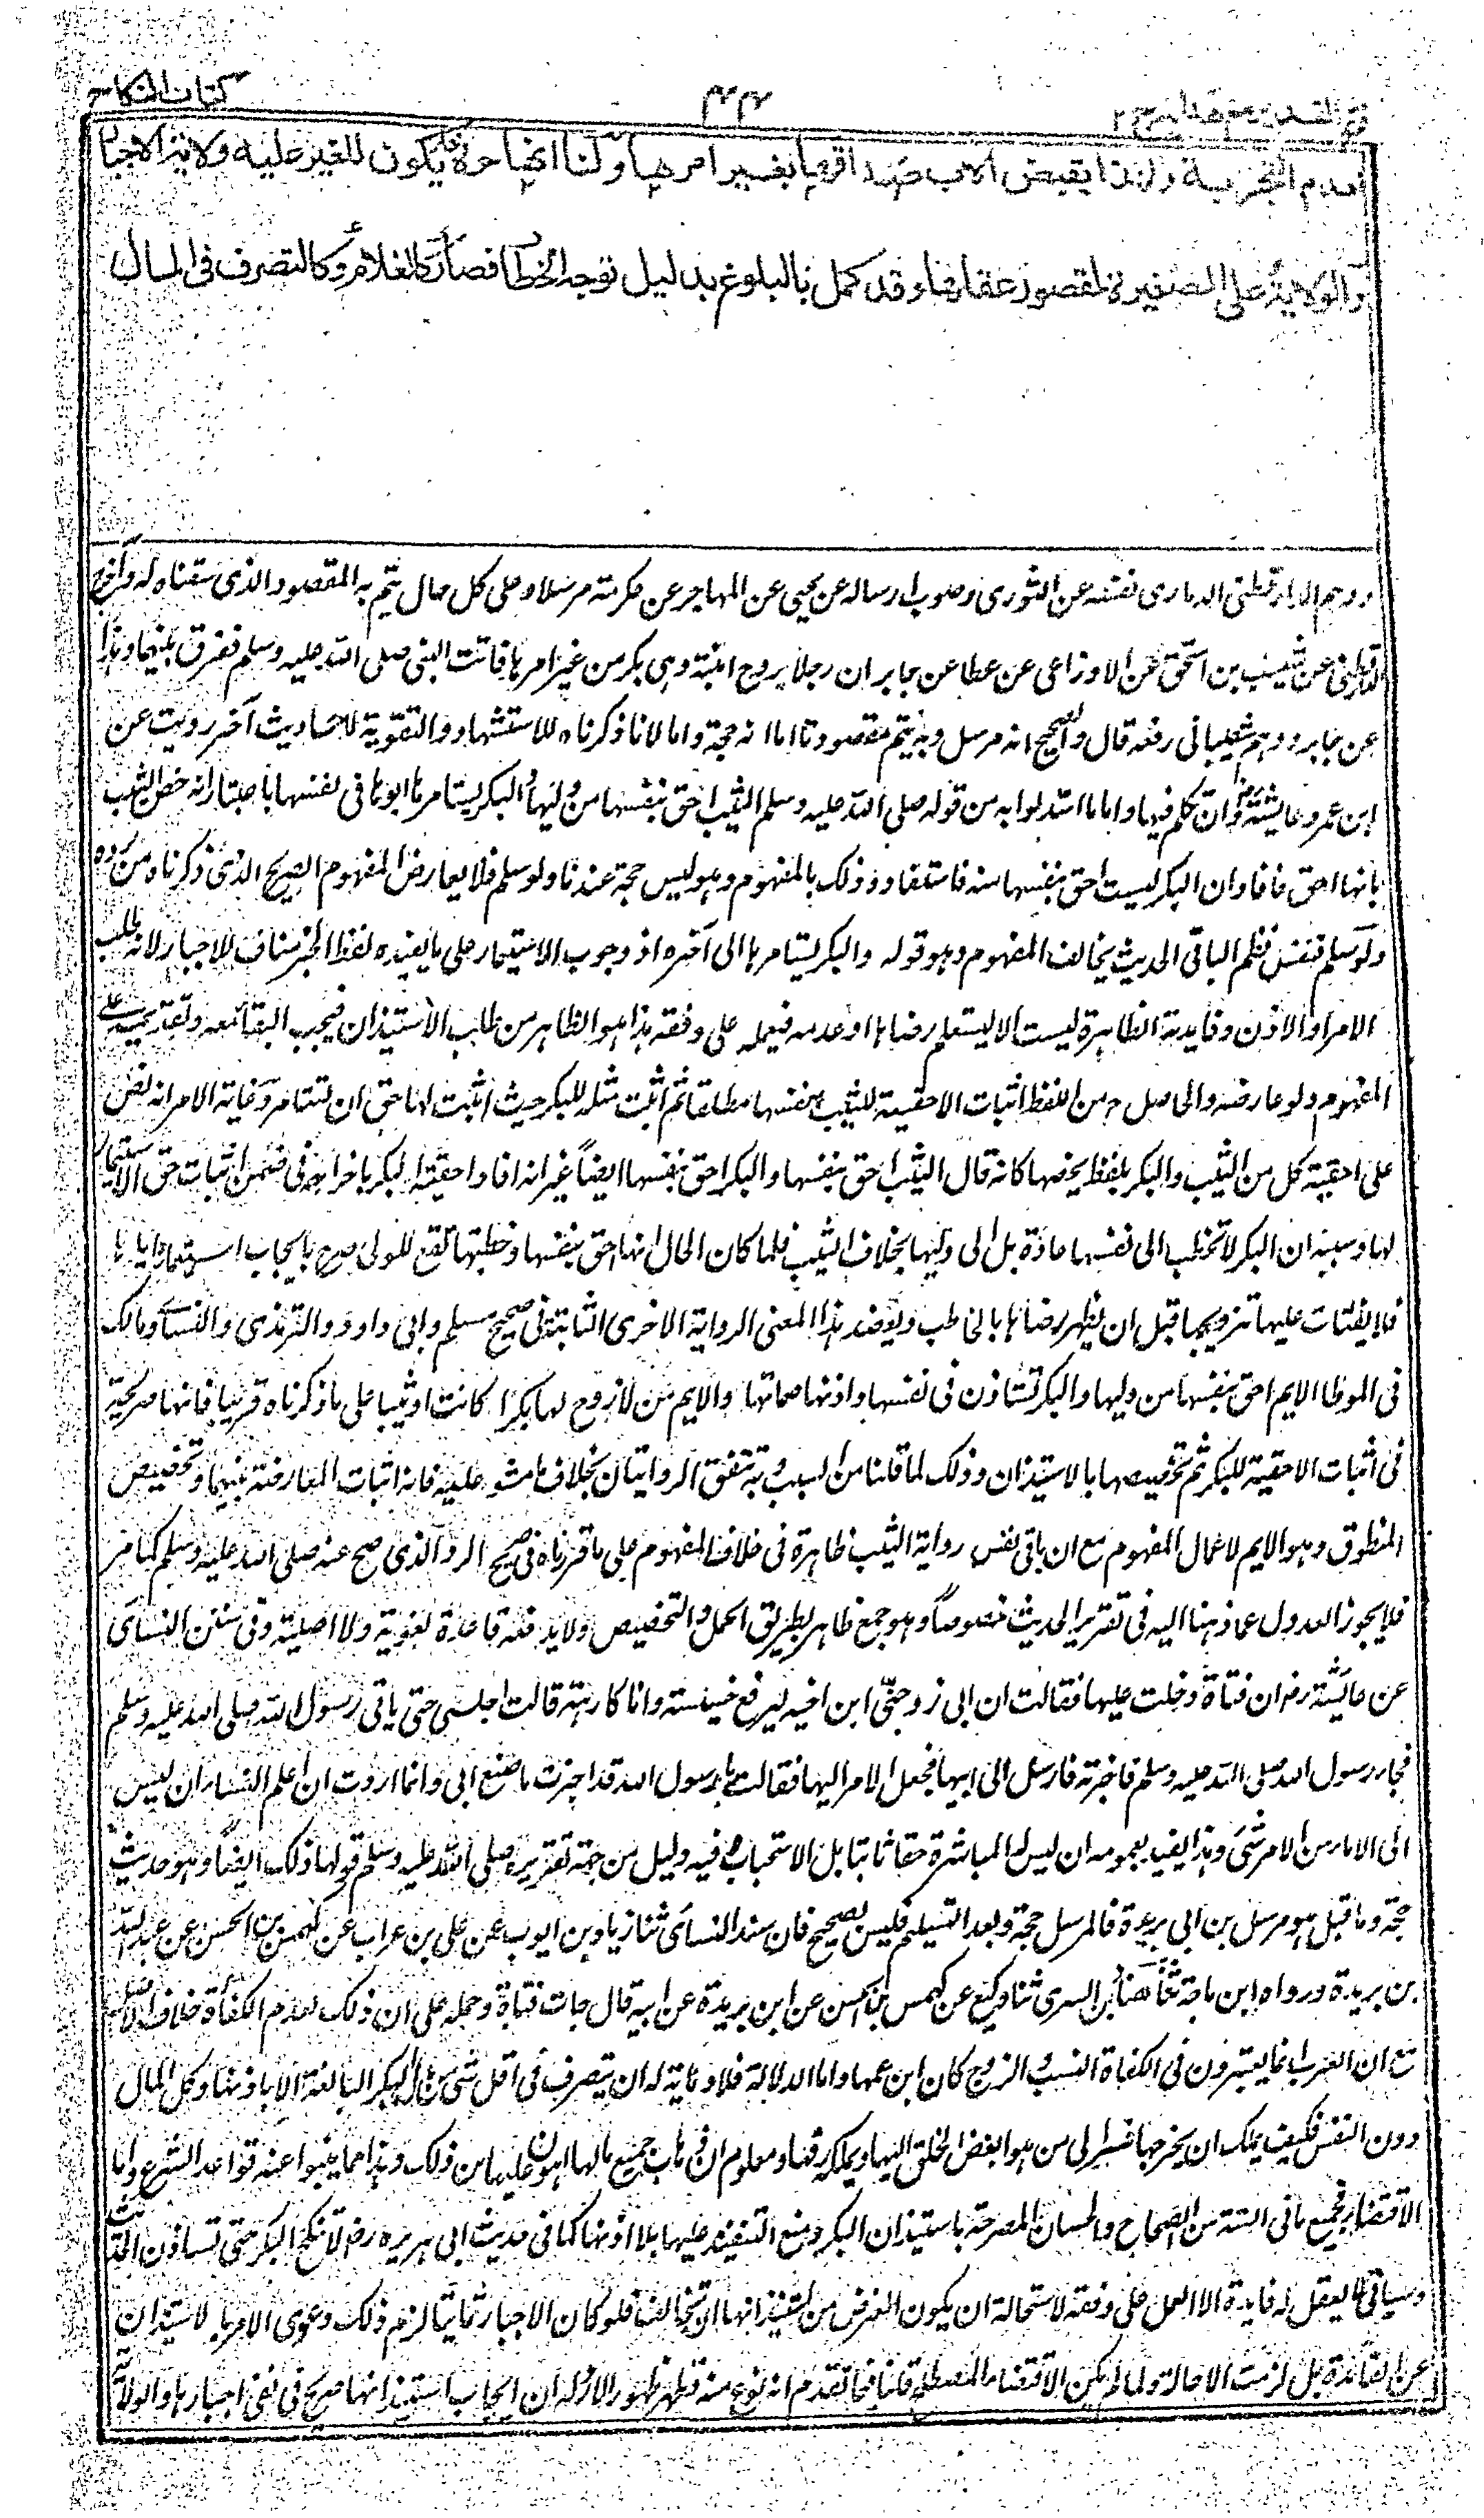 فتح القدير مع هداية ج ٢
٤٤
كتاب النكاح
لعدم التجربة ولهذا يقبض الاب صداقها بغير امرها ولنا انها حرة فلا يكون للغير عليها ولاية الاجبار
والولاية على الصغيرة لقصور عقلها وقد كمل بالبلوغ بدليل توجه الخطاب فصار كالغلام وكالتصرف في المال
ووهم الدارقطني الذماري نفسه عن الثوري وصوب ارساله عن يحيى عن المهاجر عن عكرمة مرسلا وعلى كل حال يتم به المقصود الذي سقناه له واخرج
الدارقطني عن شعيب بن اسحق عن الاوزاعي عن عطا عن جابر ان رجلا زوج ابنته وهي بكر من غير امرها فاتت النبي صلى الله عليه وسلم ففرق بينهما وهذا
عن جابر ووهم شعيبا في رفعه قال والصحيح انه مرسل وبه يتم مقصودنا اما انه حجة واما لانا ذكرناه للاستشهاد والتقوية لاحاديث آخر رويت عن
ابن عمر وعايشة رض وان تكلم فيها واما ما استدلوا به من قوله صلى الله عليه وسلم الثيب احق بنفسها من وليها والبكر يستامرها ابوها في نفسها باعتبار انه خص الثيب
بانها احق فافاد ان البكر ليست احق بنفسها منه فاستفاد وذلك بالمفهوم وهو ليس حجة عندنا ولو سلم فلا يعارض المفهوم الصريح الذي ذكرناه من رده
ولو سلم فنفس نظم الباقي الحديث يخالف المفهوم وهو قوله والبكر يستامرها الى آخره اذ وجوب الاستيمار على ما يفيده لفظ الخبر مناف للاجبار لانه طلب
الامر او الاذن وفايدته الظاهرة ليست الا ليستعلم رضاها او عدمه فيعمل على وفقه هذا هو الظاهر من طلب الاستيذان فيجب البقا معه وتقديمه على
المفهوم ولو عارضه والحاصل من اللفظ اثبات الاحقية للثيب بنفسها مطلقا ثم اثبت مثله للبكر حيث اثبت لها حق ان تستامر وغاية الامر انه نص
على احقية كل من الثيب والبكر بلفظ يخصها كانه قال الثيب احق بنفسها والبكر احق بنفسها ايضاً غير انه افاد احقية البكر باخراجه في ضمن اثبات حق الاستيمار
لها وسببه ان البكر لا تخطب الى نفسها عادة بل الى وليها بخلاف الثيب فلما كان الحال انها احق بنفسها وخطبتها تقع للولي صرح بايجاب استيماره اياها
فلا يفتات عليها تزويجها قبل ان يظهر رضاها بالخاطب ويعضد هذا المعنى الرواية الاخرى الثابتة في صحيح مسلم وابي داود والترمذي والنسائي ومالك
في الموطا الايم احق بنفسها من وليها والبكر تستاذن في نفسها واذنها صماتها والايم من لا زوج لها بكرا كانت او ثيبا على ما ذكرناه قريبا فانها صريحة
في اثبات الاحقية للبكر ثم تخصيصها بالاستيذان وذلك لما قلنا من السبب وبه تتفق الروايتان بخلاف ما مشوا عليه فانه اثبات المعارضة بينهما وتخصيص
المنطوق وهو الايم لاعمال المفهوم مع ان باقي نفس رواية الثيب ظاهرة في خلاف المفهوم على ما قررناه في صحيح الرد الذي صح عنه صلى الله عليه وسلم كما مر
فلا يجوز العدول عما ذهبنا اليه في تقرير الحديث خصوصاً وهو جمع ظاهر بطريق الحمل والتخصيص ولا يدفعه قاعدة لغوية ولا اصلية وفي سنن النسائي
عن عايشة رض ان فتاة دخلت عليها فقالت ان ابي زوجني ابن اخيه ليرفع خسيسته وانا كارهة قالت اجلسي حتى ياتي رسول الله صلى الله عليه وسلم
فجاء رسول الله صلى الله عليه وسلم فاخبرته فارسل الى ابيها فجعل الامر اليها فقالت يا رسول الله قد اجزت ما صنع ابي وانما اردت ان اعلم النساء ان ليس
الى الاباء من الامر شيء وهذا يفيد بعمومه ان ليس له المباشرة حقا ثابتا بل الاستحباب وفيه دليل من جهة تقريره صلى الله عليه وسلم قولها ذلك ايضا وهو حديث
حجة وما قيل هو مرسل بن ابي بريدة فالمرسل حجة وبعد التسليم فليس بصحيح فان سند النسائي ثنا زياد بن ايوب عن علي بن غراب عن كهمس بن الحسن عن عبد الله
بن بريدة ورواه ابن ماجة ثنا هناد بن السري ثنا وكيع عن كهمس بن الحسن عن ابن بريدة عن ابيه قال جات فتاة وحمله على ان ذلك لعدم الكفاءة خلاف الاصل
مع ان العرب انما يعتبرون في الكفاءة النسب والزوج كان ابن عمها واما الدلالة فلا ولاية له ان يتصرف في اقل شيء من مال البكر البالغة الا باذنها وكل المال
دون النفس فكيف يملك ان يخرجها قسرا الى من هو ابغض الخلق اليها ويملكه رقها ومعلوم ان ذهاب جميع مالها اهون عليها من ذلك وهذا مما ينبو عنه قواعد الشرع واما
الاقتضاء فجميع ما في السنة من الصحاح والحسان المصرحة باستيذان البكر ومنع التنفيذ عليها بلا اذنها كما في حديث ابي هريره رض لا تنكح البكر حتى تستاذن الحديث
وسياتي لا يعقل له فايدة الا العمل على وفقه لاستحالة ان يكون الغرض من استيذانها ان تخالف فلو كان الاجبار ثابتا لزم ذلك وعرى الامر بالاستيذان
عن الفائدة بل لزمت الاحالة ولما لم يكن الاقتضاء المصطلح قلنا فيما تقدم انه نوع منه فظهر ظهورا لا مرد له ان ايجاب استيذانها صريح في نفي اجبارها والولاية